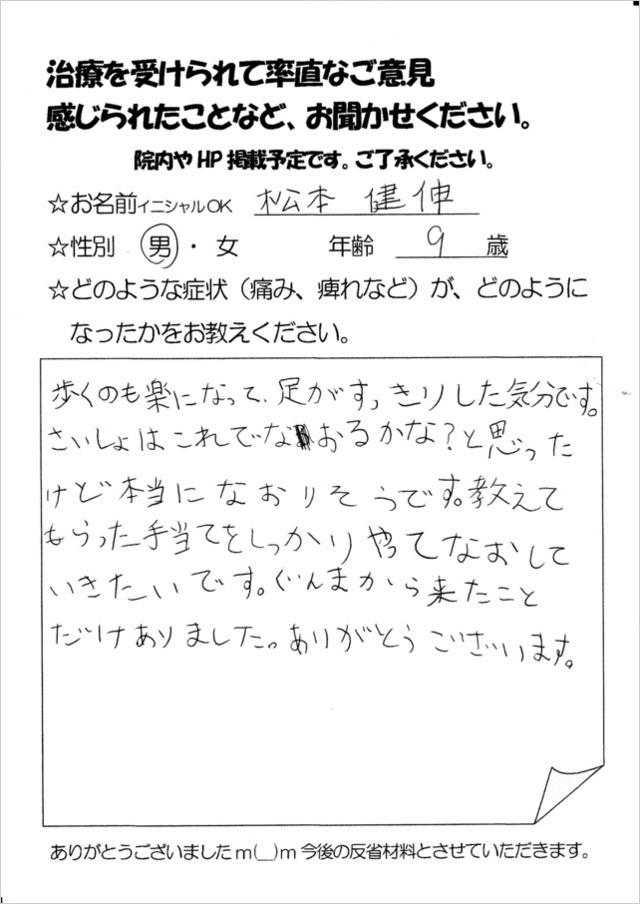 治療を受けられて率直なご意見
感じられたことなど、お聞かせください。
院内や HP 掲載予定です。ご了承ください。
☆お名前イニシャルOK 松本 健伸
☆性別 男・女 年齢 9 歳
☆どのような症状（痛み、痺れなど）が、どのように
なったかをお教えください。
歩くのも楽になって、足がすっきりした気分です。
さいしょはこれでなおるかな?と思った
けど本当になおりそうです。教えて
もらった手当てをしっかりやってなおして
いきたいです。ぐんまから来たこと
だけありました。ありがとうございます。
ありがとうございましたm(__)m今後の反省材料とさせていただきます。